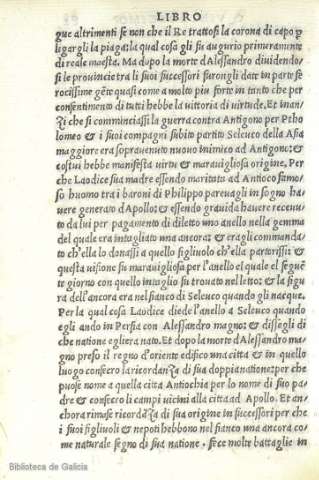 LIBRO
gue altrimenti se non che il Re trattosi la corona di capo p
ligargli la piaga: la qual cosa gli fu augurio primeramente
di reale maesta. Ma dopo la morte d'Alessandro diuidendo/
si le prouincie tra li suoi successori furongli date in parte fe
rocissime gẽte quasi come a molto piu forte in tanto che per
consentimento di tutti hebbe la uittoria di uirtude. Et inan/
zi che si cominciassi la guerra contra Antigono per Ptho
lomeo & i suoi compagni subito partito Seleuco della Asia
maggiore era soprauenuto nuouo inimico ad Antigono: &
costui hebbe manifesta uirtu & marauigliosa origine, Per
che Laodice sua madre essendo maritata ad Antioco famo/
so huomo tra i baroni di Philippo pareuagli in sogno ha
uere generato d'Apollo: & essendo grauida hauere receuu
to da lui per pagamento di diletto uno anello nella gemma
del quale era intagliato una ancora: & eragli commanda/
to ch'ella lo donassi a quello figliuolo ch'ella partorissi: &
questa uisione fu marauigliosa per l'anello el quale el seguẽ
te giorno con quello intaglio fu trouato nel letto: & la figu
ra dell'ancora era nel fianco di Seleuco quando gli nacque.
Per la qual cosa Laodice diede l'anello a Seleuco quando
egli ando in Persia con Alessandro magno: & dissegli di
che natione egli era nato. Et dopo la morte d'Alessandro ma
gno preso il regno d'oriente edifico una citta & in quello
luogo consecro la ricordanza di sua doppia natione: per che
puose nome a quella citta Antiochia per lo nome di suo pa
dre & consecro li campi uicini alla citta ad Apollo. Et an
chora rimase ricordãza di sua origine in successori per che
i suoi figliuoli & nepoti hebbono nel fianco una ancora co
me naturale segno di sua natione. fece molte battaglie in
Biblioteca de Galicia